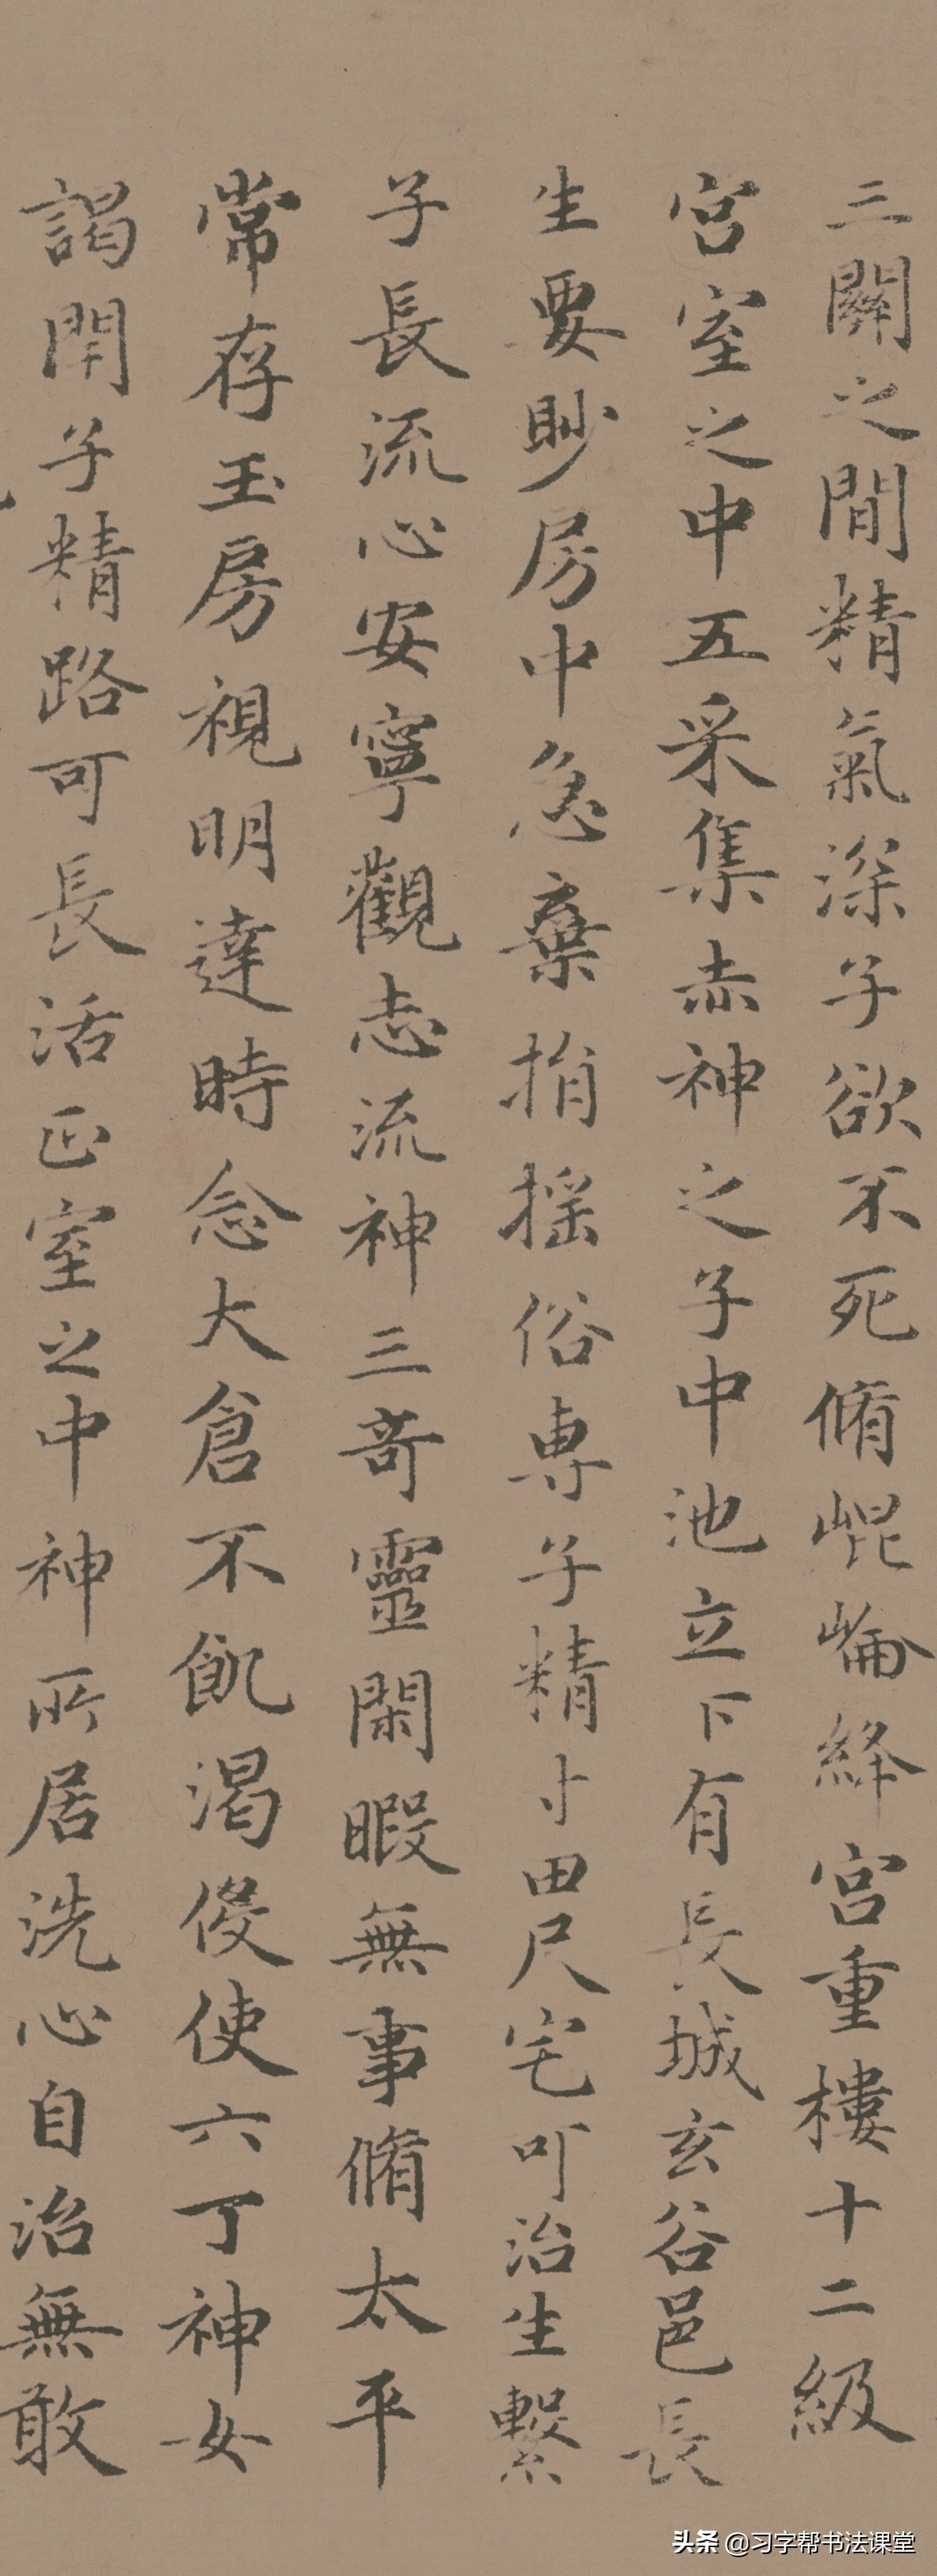 三關之間精氣深子欲不死脩崐崘絳宮重樓十二級
宮室之中五采集赤神之子中池立下有長城玄谷邑長
生要眇房中急棄捐搖俗專子精寸田尺宅可治生繫
子長流心安寧觀志流神三奇靈閑暇無事脩太平
常存玉房視明達時念大倉不飢渴役使六丁神女
謁閇子精路可長活正室之中神所居洗心自治無敢
头条 @习字帮书法课堂